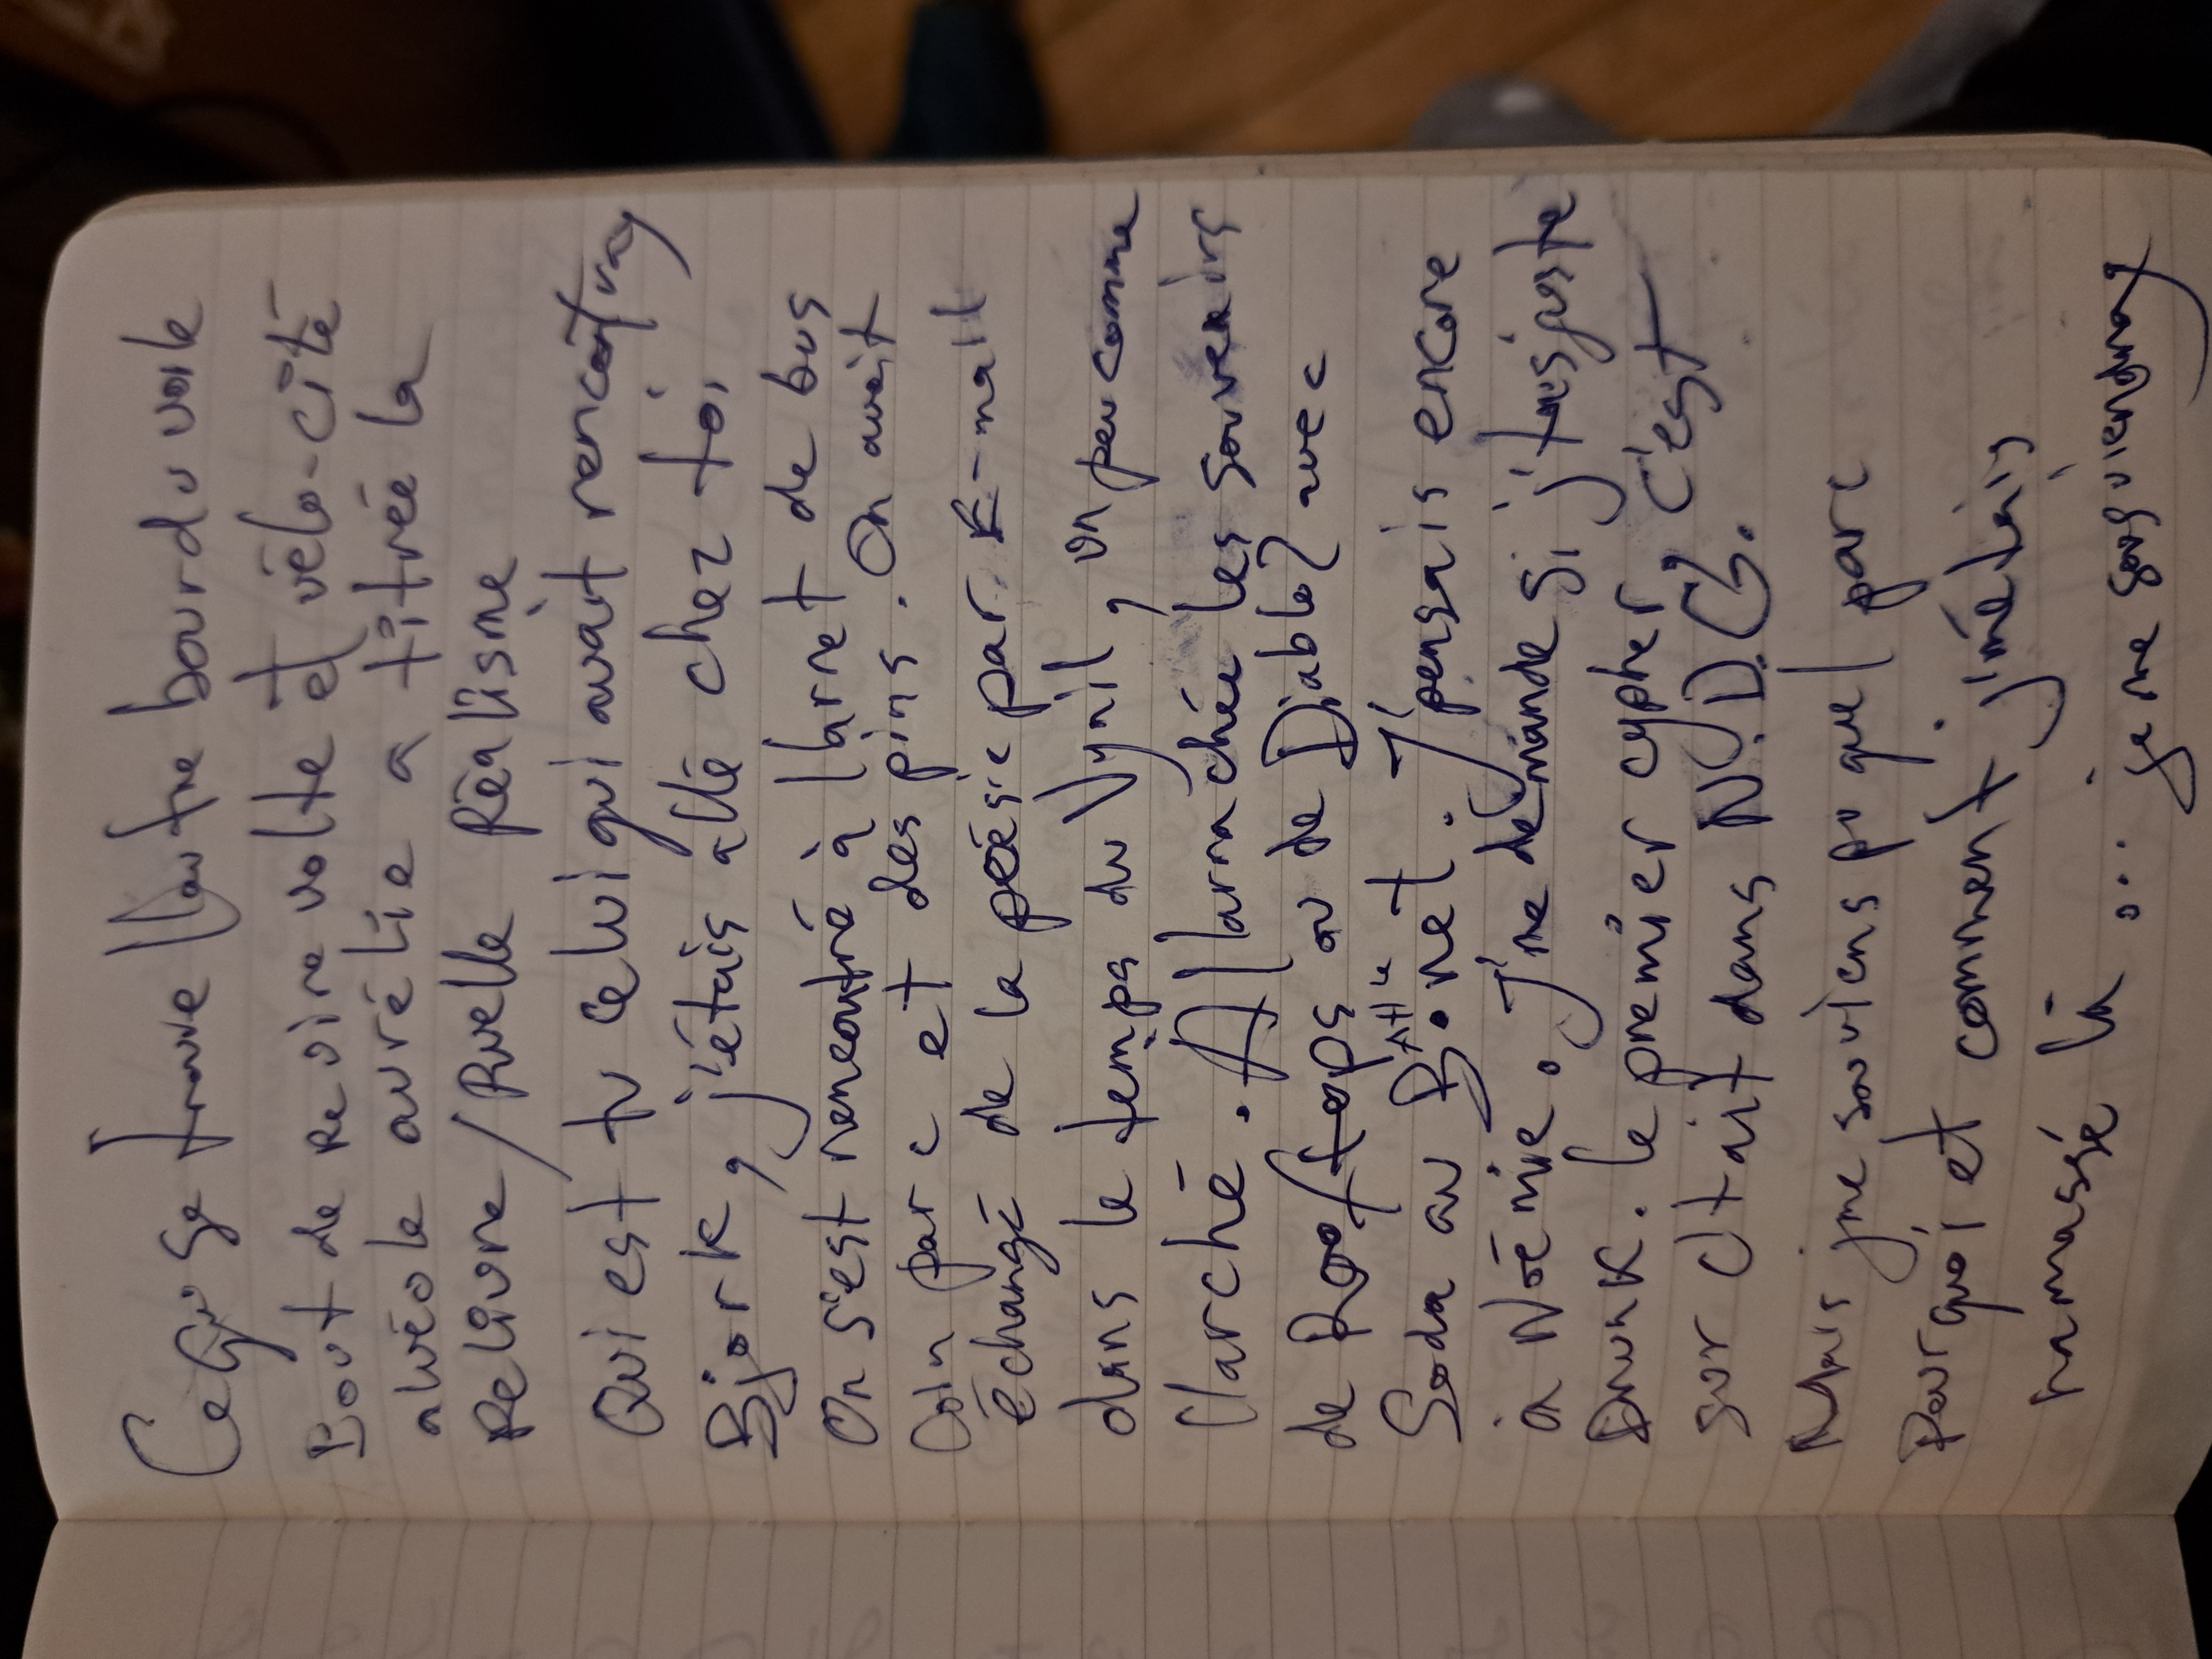 Ce qui se trouve l'autre bour du voile
Bout de revire volte et vélo-cité
alvéole aurélie a titrée la
Relivre/Ruelle Réalisme
Qui est tu celui qui avait rencontray
Bjork, j'étais allé chez toi,
On s'est rencontré à l'arret de bus
Coin parc et des pins. On avait
échangé de la poésie par E-mail
dans le temps du Vynil, un peu comme
Marché. All larrachée les souverains
de Rooftops ou de Diablo? avec
Soda au B.Battle.net. J'pensais encore
à Noémie. J'me demande si j'tais juste
Drunk. le premier cypher C'est
sur C'tait dans N.D.G.
Mais j'me souviens pu quel parc
Pourquoi et comment j'm'étais
ramassé là... je me souviendray